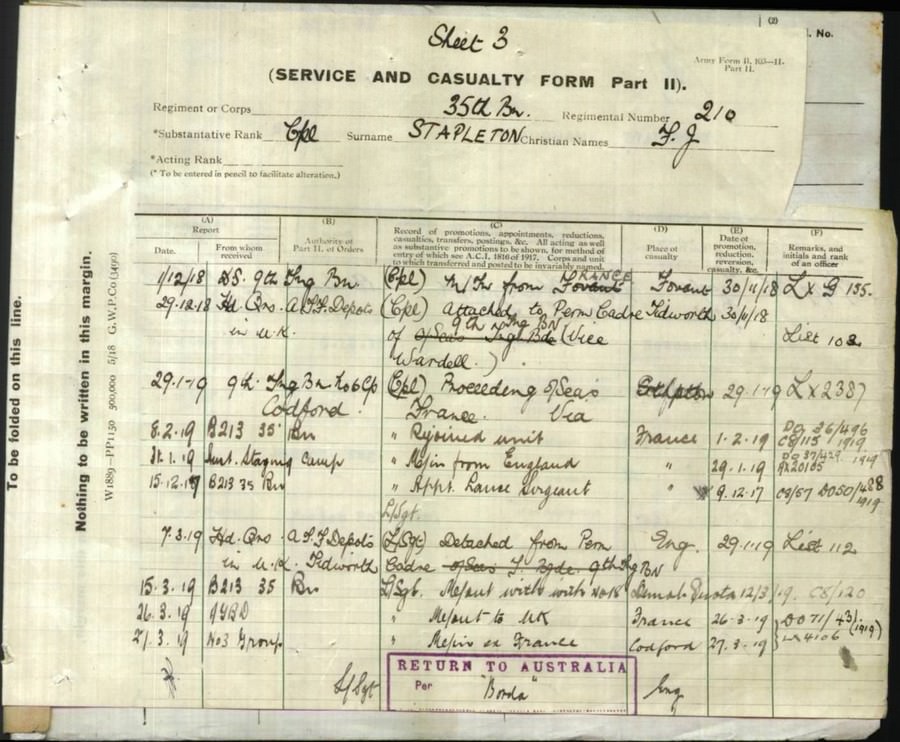 (2)
. No.
Sheet 3
Army Form B. 103—II.
Part II.
(SERVICE AND CASUALTY FORM Part II).
Regiment or Corps 35th Bn. Regimental Number 210
*Substantive Rank Cpl Surname STAPLETON Christian Names F. J
*Acting Rank
(* To be entered in pencil to facilitate alteration.)
To be folded on this line.
Nothing to be written in this margin.
W1889—PP1130 500,000 5/18 G.W.P.Co.(3490)
(A) Report
Date.
From whom received
(B)
Authority of Part II. of Orders
(C)
Record of promotions, appointments, reductions,
casualties, transfers, postings, &c. All acting as well
as substantive promotions to be shown, for method of
entry of which see A.C.I. 1816 of 1917. Corps and unit
to which transferred and posted to be invariably named.
(D)
Place of casualty
(E)
Date of promotion, reduction, reversion, casualty, &c.
(F)
Remarks, and initials and rank of an officer
DRANCE
1/12/18 9th Tng Bn. (Cpl) from Fovant 30/11/18 L x G 135.
29.12.18 Hd. Qrs. A.I.F. Depots (Cpl) attached to Perm Cadre Tidworth 30/11/18
in U.K. of 9th Tng BN (Vice List 102
Wardell.)
29.1.19 9th Tng Bn Codford. (Cpl) Proceeding O/Seas 29.1.19 L x 2387
France. Via
8.2.19 B213 35 Bn " Rejoined unit France 1.2.19 DO 36/496
C8/115 1919
31.1.19 Staging Camp " M/in from England " 29.1.19 DO 37/429 1919
AX20105
15.12.17 B213 35 Bn " Appt. Lance Sergeant " 9.12.17 C8/57 DO50/488
1919
L/Sgt.
7.3.19 Hd. Qrs A.I.F Depots (L/Sgt) Detached from Perm Eng. 29.1.19 List 112
in U.K. Tidworth Cadre 9th Tng BN
15.3.19 B213 35 Bn L/Sgt. M/out with No 18 Demob Quota 12/3/19. C8/120
26.3.19 " M/out to UK France 26.3.19 DO 71/431
(1919)
27.3.19 No3 Group " M/in ex France Codford 27.3.19 4106
L/Sgt
RETURN TO AUSTRALIA
Per "Borda"
Eng